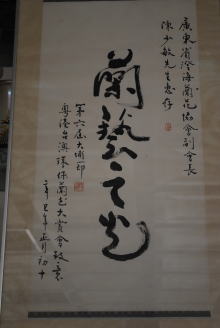 廣東省澄海蘭花協會副會長
陳少敏先生惠存
蘭藝之光
第六屆大埔節
粵港台澳環保蘭花大賞會致意
辛巳年正月初十